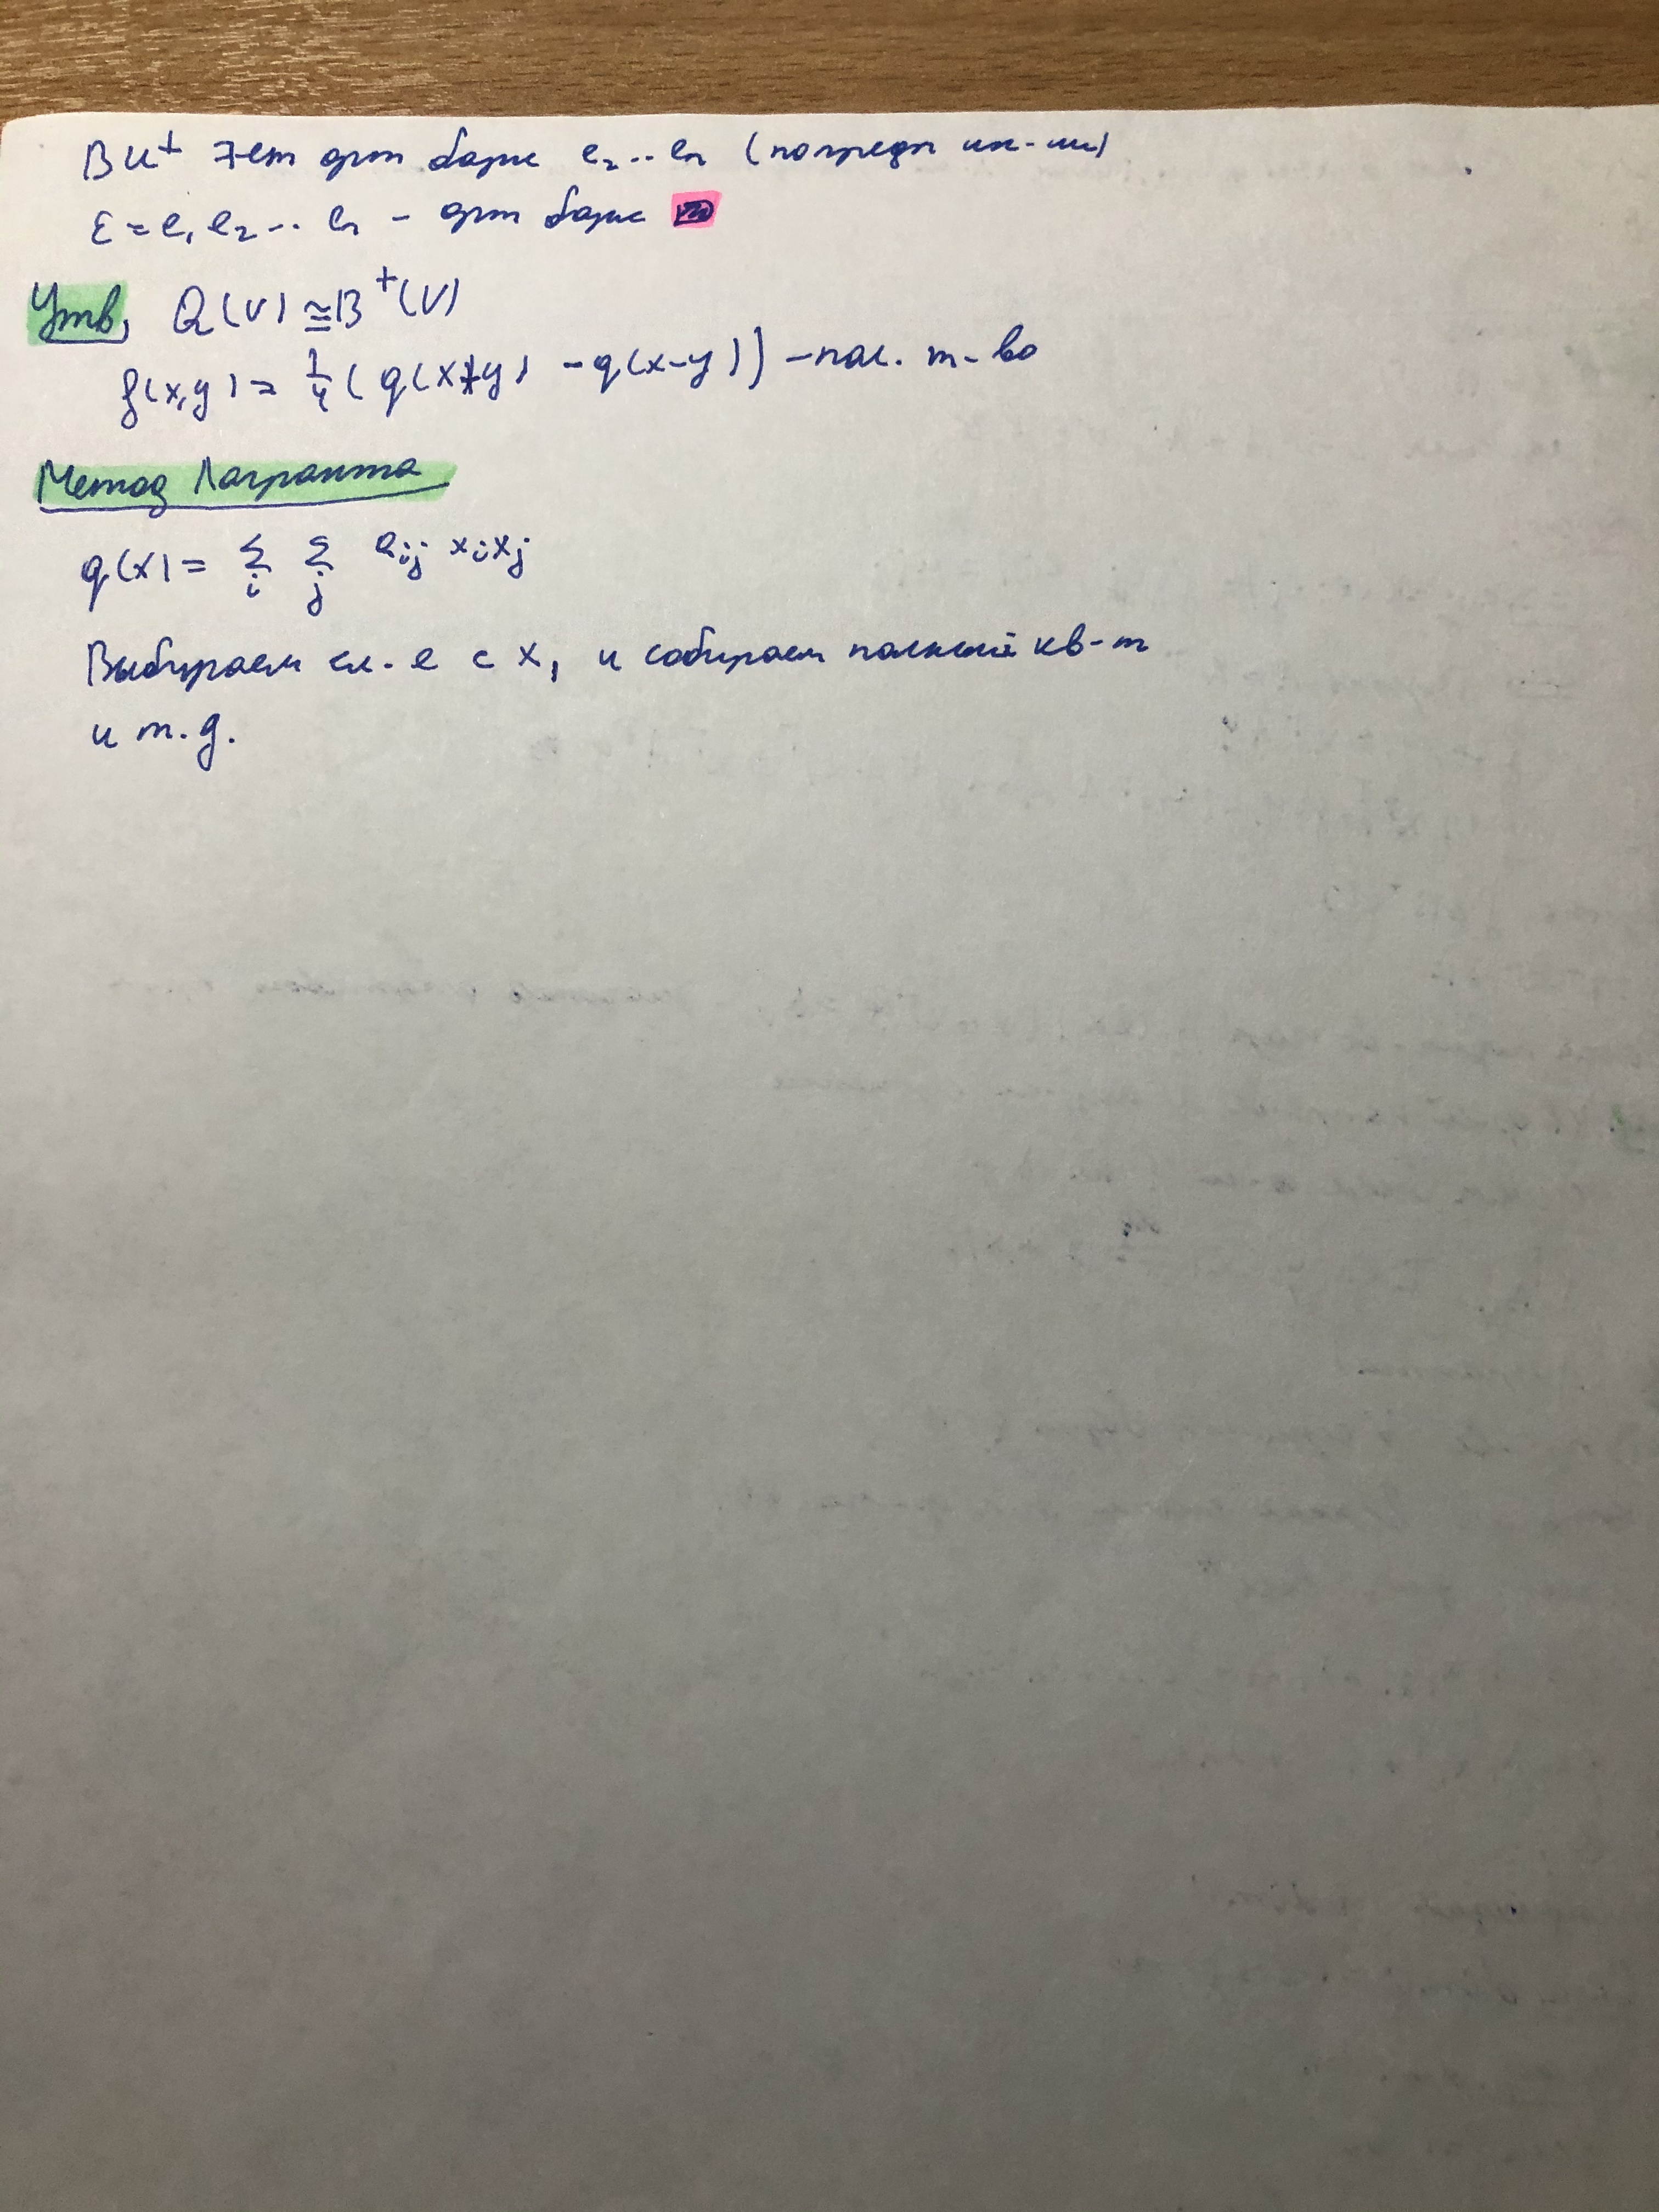 В U⊥ ∃-ет орт базис e₂..eₙ (по предп ин-ии)
ℰ = e₁ e₂ .. eₙ - орт базис
Утв, Q(V) ≅ B⁺(V)
f(x,y) = 1/4 (q(x+y) - q(x-y)) - пол. т-во
Метод Лагранжа
q(x) = Σᵢ Σⱼ aᵢⱼ xᵢxⱼ
Выбираем сл. е с x₁ и собираем полный кв-т
и т.д.